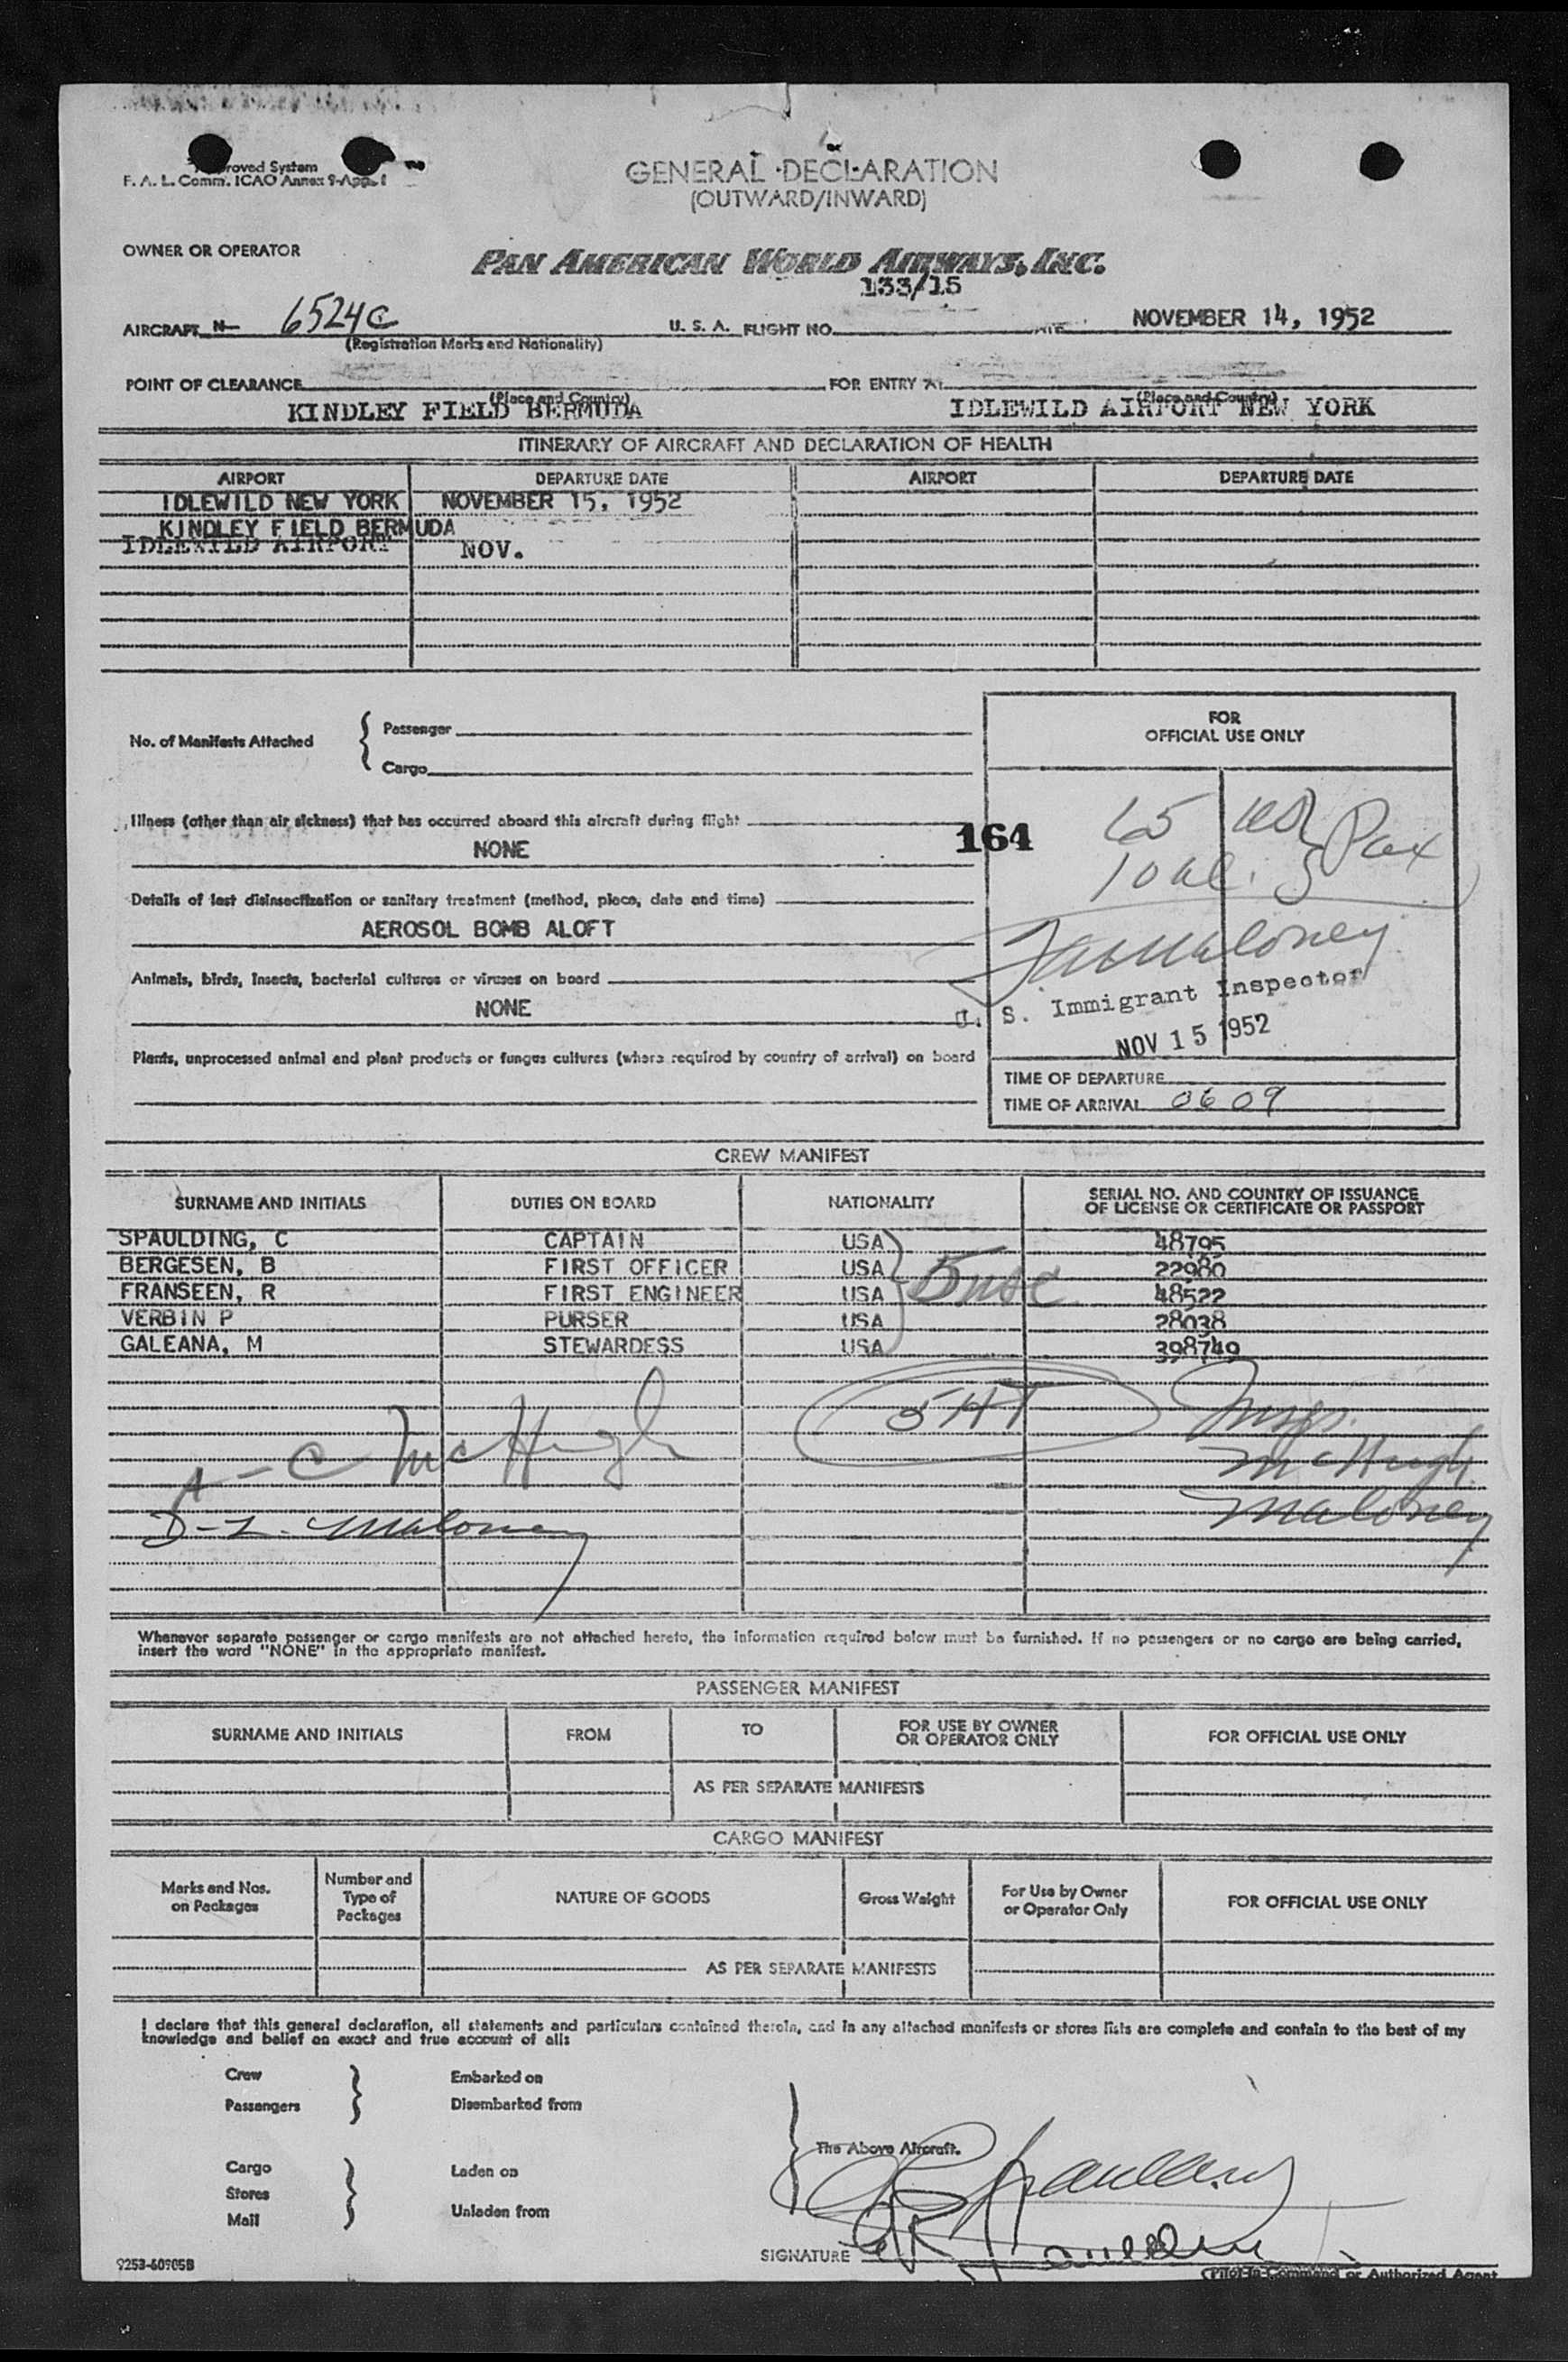 GENERAL DECLARATION
(OUTWARD/INWARD)
roved System
F. A. L. Comm. ICAO Annex 9-App. 1
OWNER OR OPERATOR
PAN AMERICAN WORLD AIRWAYS, INC.
133/15
AIRCRAFT N- 6524C U. S. A. FLIGHT NO. NOVEMBER 14, 1952
(Registration Marks and Nationality)
POINT OF CLEARANCE FOR ENTRY AT
(Place and Country) (Place and Country)
KINDLEY FIELD BERMUDA IDLEWILD AIRPORT NEW YORK
ITINERARY OF AIRCRAFT AND DECLARATION OF HEALTH
AIRPORT DEPARTURE DATE AIRPORT DEPARTURE DATE
IDLEWILD NEW YORK NOVEMBER 15, 1952
KINDLEY FIELD BERMUDA
IDLEWILD AIRPORT NOV.
No. of Manifests Attached
Passenger
Cargo
FOR
OFFICIAL USE ONLY
Illness (other than air sickness) that has occurred aboard this aircraft during flight
NONE
164
65 Pax
10 al.
Details of last disinsectization or sanitary treatment (method, place, date and time)
AEROSOL BOMB ALOFT
Maloney
Animals, birds, insects, bacterial cultures or viruses on board
NONE
U. S. Immigrant Inspector
NOV 15 1952
Plants, unprocessed animal and plant products or fungus cultures (where required by country of arrival) on board
TIME OF DEPARTURE
TIME OF ARRIVAL 0609
CREW MANIFEST
SURNAME AND INITIALS DUTIES ON BOARD NATIONALITY SERIAL NO. AND COUNTRY OF ISSUANCE
OF LICENSE OR CERTIFICATE OR PASSPORT
SPAULDING, C CAPTAIN USA 48795
BERGESEN, B FIRST OFFICER USA 22980
FRANSEEN, R FIRST ENGINEER USA 48522
VERBIN P PURSER USA 28038
GALEANA, M STEWARDESS USA 398749
5 usc
5 HT Insps.
A - C McHugh McHugh
D - L. Maloney Maloney
Whenever separate passenger or cargo manifests are not attached hereto, the information required below must be furnished. If no passengers or no cargo are being carried,
insert the word "NONE" in the appropriate manifest.
PASSENGER MANIFEST
SURNAME AND INITIALS FROM TO FOR USE BY OWNER
OR OPERATOR ONLY FOR OFFICIAL USE ONLY
AS PER SEPARATE MANIFESTS
CARGO MANIFEST
Marks and Nos.
on Packages
Number and
Type of
Packages
NATURE OF GOODS Gross Weight
For Use by Owner
or Operator Only
FOR OFFICIAL USE ONLY
AS PER SEPARATE MANIFESTS
I declare that this general declaration, all statements and particulars contained therein, and in any attached manifests or stores lists are complete and contain to the best of my
knowledge and belief an exact and true account of all:
Crew Embarked on
Passengers Disembarked from
The Above Aircraft.
Cargo Laden on
Stores
Mail Unladen from
C Spaulding
SIGNATURE
9253-60905B
Pilot-in-Command or Authorized Agent